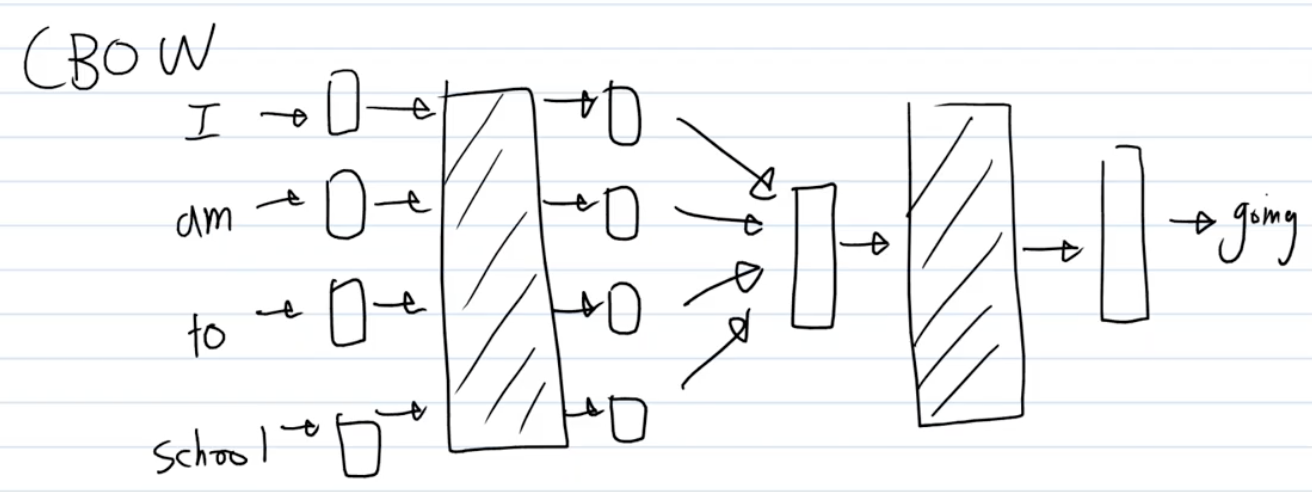 CBOW
I
am
to
school
going